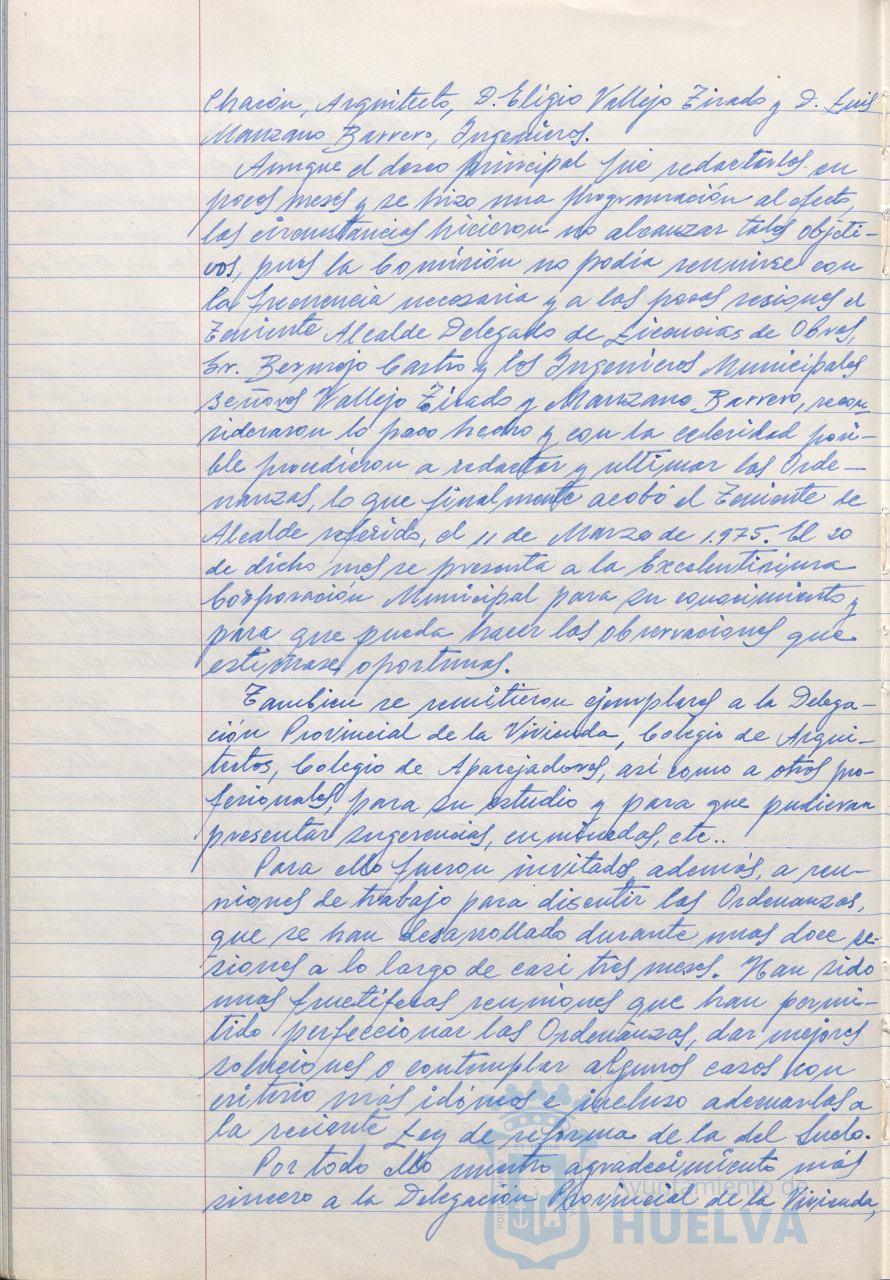 Chacón, Arquitecto, D. Eligio Vallejo Tirado y D. Luis
Manzano Barrero, Ingenieros.
Aunque el deseo principal fue redactarlos en
pocos meses y se hizo una programación al efecto,
las circunstancias hicieron no alcanzar tales objeti-
vos, pues la Comisión no podía reunirse con
la frecuencia necesaria y a las pocas sesiones el
Teniente Alcalde Delegado de Licencias de Obras,
Sr. Bermejo Castro y los Ingenieros Municipales
señores Vallejo Tirado y Manzano Barrero, recon-
sideraron lo poco hecho y con la celeridad posi-
ble procedieron a redactar y ultimar las Orde-
nanzas, lo que finalmente acabó el Teniente de
Alcalde referido, el 11 de Marzo de 1.975. El 20
de dicho mes se presenta a la Excelentísima
Corporación Municipal para su conocimiento y
para que pueda hacer las observaciones que
estimase oportunas.
Tambien se remitieron ejemplares a la Delega-
ción Provincial de la Vivienda, Colegio de Arqui-
tectos, Colegio de Aparejadores, así como a otros pro-
fesionales, para su estudio y para que pudieran
presentar sugerencias, enmiendas, etc..
Para ello fueron invitados, además, a reu-
niones de trabajo para discutir las Ordenanzas,
que se han desarrollado durante unas doce se-
siones a lo largo de casi tres meses. Han sido
unas fructíferas reuniones que han permi-
tido perfeccionar las Ordenanzas, dar mejores
soluciones o contemplar algunos casos con
criterio más idóneos e incluso adecuarlas a
la reciante Ley de reforma de la del Suelo.
Por todo ello nuestro agradecimiento más
sincero a la Delegación Provincial de la Vivienda,
Ayuntamiento de
HUELVA